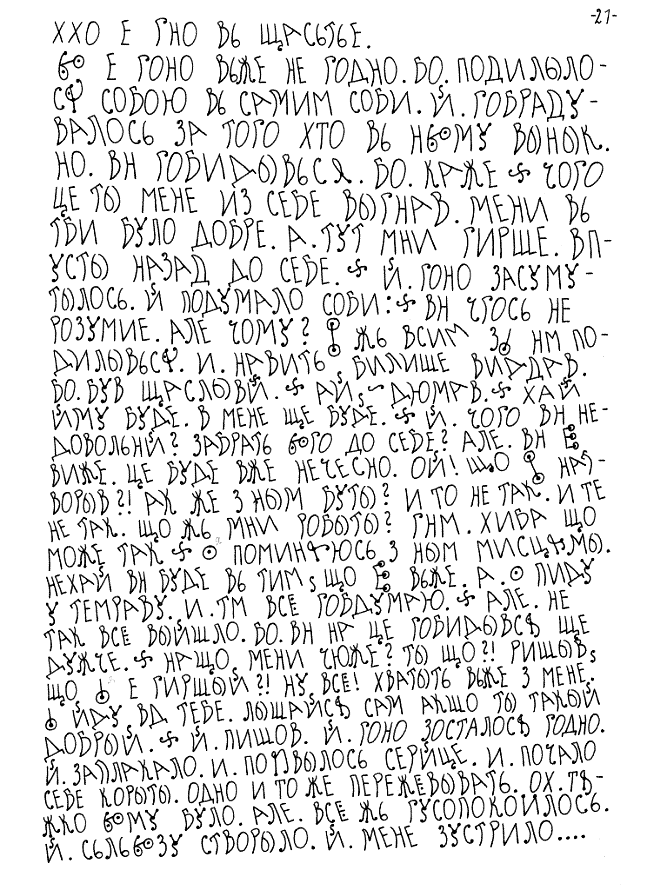 -21-
ХХО Е ГНО ВЬ ЩАСЬТЬЕ.
Е ГОНО ВЬЖЕ НЕ ГОДНО. БО. ПОДИЛЫЛО-
СОБОЮ ВЬ САМИМ СОБИ. Й. ГОБРАДУ-
ВАЛОСЬ ЗА ТОГО ХТО ВЬ ВЫНЫК.
НО. ВН БО. КАЖЕ ЧОГО
ЦЕ ТЫ МЕНЕ ИЗ СЕБЕ ВЫГНАВ. МЕНИ ВЬ
ТБИ БУЛО ДОБРЕ. А. ТУТ МНИ ГИРШЕ. ВП-
УСТЫ НАЗАД ДО СЕБЕ. Й. ГОНО ЗАСУМУ-
ТЫЛОСЬ. Й ПОДУМАЛО СОБИ: ВН ЧГОСЬ НЕ
РОЗУМИЕ. АЛЕ ЧОМУ? ЖЬ ВСИМ НМ ПО-
И. НАВИТЬ БИЛИШЕ ВИДДАВ.
БО. БУВ ЩАСЛЫВЙ. ДЮМАВ. ХАЙ
ЙМУ БУДЕ. В МЕНЕ ЩЕ БУДЕ. Й. ЧОГО ВН НЕ-
ДОВОЛЬНЙ? ЗАБРАТЬ ДО СЕБЕ? АЛЕ. ВН
ВИЖЕ. ЦЕ БУДЕ ВЖЕ НЕЧЕСНО. ОЙ! ЩО НАЗ-
ВОРЫВ?! АК ЖЕ З НЫМ БУТЫ? И ТО НЕ ТАК. И ТЕ
НЕ ТАК. ЩО ЖЬ МНИ РОБЫТЫ? ГНМ. ХИБА ЩО
МОЖЕ ТАК З НЫМ
НЕХАЙ ВН БУДЕ ВЬ ТИМ, ЩО ВЬЖЕ. А. ПИДУ
У ТЕМРАВУ. И. ТМ ВСЕ ГОБДУМАЮ. АЛЕ. НЕ
ТАК ВСЕ ВЫЙШЛО. БО. ВН НА ЦЕ ЩЕ
ДУЖЧЕ. НАЩО МЕНИ ЧЮЖЕ? ТЫ ЩО?! РИШЫВ,
ЩО Е ГИРШЫЙ?! НУ ВСЕ! ХВАТЫТЬ ВЬЖЕ З МЕНЕ.
ЙДУ ВД ТЕБЕ. САМ АКЩО ТЫ ТАКЫЙ
ДОБРЫЙ. Й. ПИШОВ. Й. ГОНО ГОДНО.
Й. ЗАПЛАКАЛО. И. СЕРЙЦЕ. И. ПОЧАЛО
СЕБЕ КОРЫТЫ. ОДНО И ТО ЖЕ ПЕРЕЖЕВЫВАТЬ. ОХ.
БУЛО. АЛЕ. ВСЕ ЖЬ ГУСПОКОИЛОСЬ.
Й. СТВОРЫЛО. Й. МЕНЕ ЗУСТРИЛО....